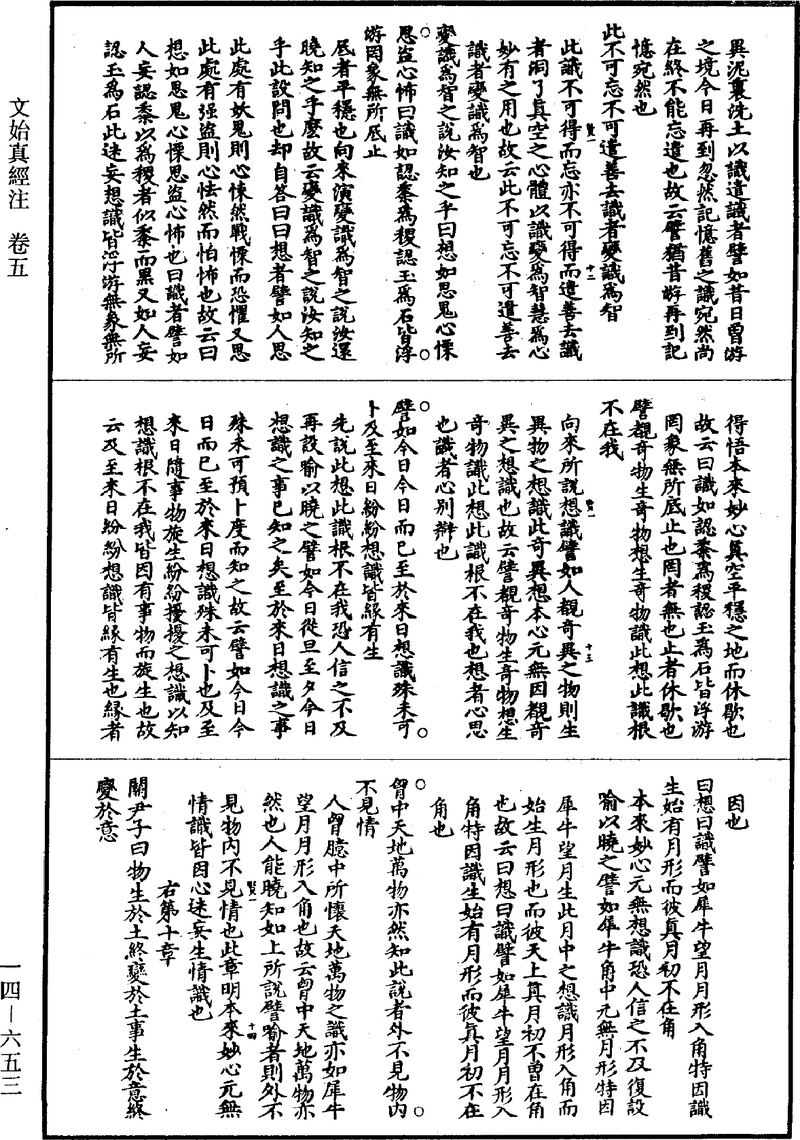 文始真經注　卷五
異泥裏洗土以識遣識者譬如昔日曾游
之境今日再到忽然記憶舊之識宛然尚
在終不能忘遣也故云譬猶昔游再到記
憶宛然也
此不可忘不可遣善去識者變識為智
此識不可得而忘亦不可得而遣善去識
者洞了真空之心體以識變為智慧為心
妙有之用也故云此不可忘不可遣善去
識者變識為智也
變識為智之說汝知之乎曰想如思鬼心慄
思盜心怖曰識如認黍為稷認玉為石皆浮
游罔象無所底止
底者平穩也向來演變識為智之說汝還
曉知之乎麼故云變識為智之說汝知之
乎此設問也却自答曰曰想者譬如人思
此處有妖鬼則心悚然戰慄而恐懼又思
此處有强盜則心怯然而怕怖也故云曰
想如思鬼心慄思盜心怖也曰識者譬如
人妄認黍以為稷者似黍而黑又如人妄
認玉為石此迷妄想識皆浮游無象無所
得悟本來妙心真空平穩之地而休歇也
故云曰識如認黍為稷認玉為石皆浮游
罔象無所底止也罔者無也止者休歇也
譬覩奇物生奇物想生奇物識此想此識根
不在我
向來所說想識譬如人覩奇異之物則生
異物之想識此奇異想本心元無因覩奇
異之想識也故云譬覩奇物生奇物想生
奇物識此想此識根不在我也想者心思
也識者心別辯也
譬如今日今日而已至於來日想識殊未可
卜及至來日紛紛想識皆緣有生
先說此想此識根不在我恐人信之不及
再設喻以曉之譬如今日從旦至夕今日
想識之事已知之矣至於來日想識之事
殊未可預卜度而知之故云譬如今日今
日而已至於來日想識殊未可卜也及至
來日隨事物旋生紛紛擾擾之想識以知
想識根不在我皆因有事物而旋生也故
云及至來日紛紛想識皆緣有生也緣者
因也
曰想曰識譬如犀牛望月月形入角特因識
生始有月形而彼真月初不在角
本來妙心元無想識恐人信之不及復設
喻以曉之譬如犀牛角中元無月形特因
犀牛望月生此月中之想識月形入角而
始生月形也而彼天上真月初不曾在角
也故云曰想曰識譬如犀牛望月月形入
角特因識生始有月形而彼真月初不在
角也
胷中天地萬物亦然知此說者外不見物內
不見情
人胷臆中所懷天地萬物之識亦如犀牛
望月月形入角也故云胷中天地萬物亦
然也人能曉知如上所說譬喻者則外不
見物內不見情也此章明本來妙心元無
情識皆因心迷妄生情識也
右第十章
關尹子曰物生於土終變於土事生於意終
變於意
一四—六五三